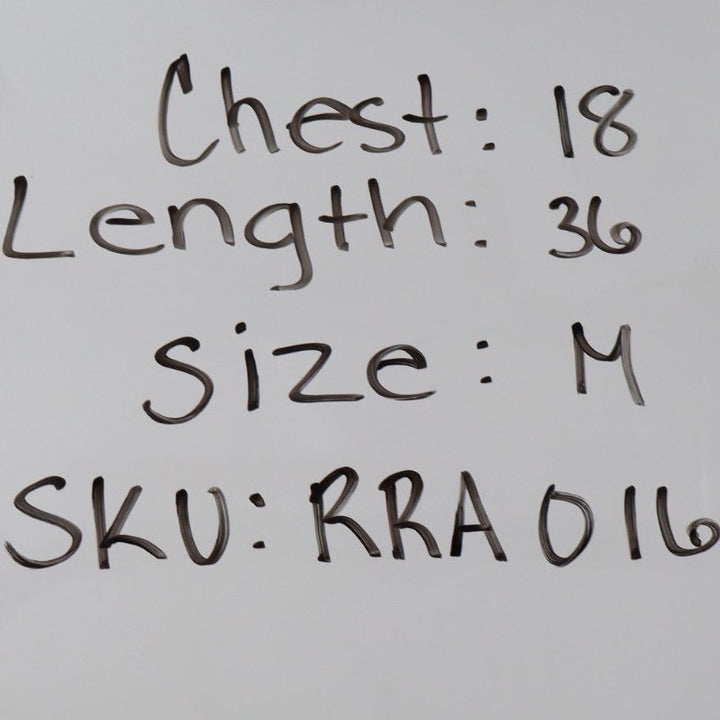 Chest: 18
Length: 36
Size: M
SKU: RRA 016